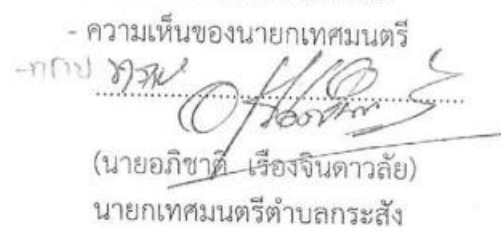 - ความเห็นของนายกเทศมนตรี
-ทราบ
(นายอภิชาติ เรืองจินดาวลัย)
นายกเทศมนตรีตำบลกระสัง